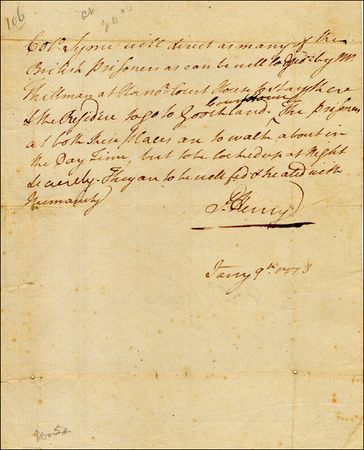 106
Colo. Syme will direct as many of the
British Prisoners as can be well lodged by Mr
Thillman at Hanor. Court House to stay there
& the Residue to go to Goochland Courthouse. The prisoners
at both these places are to walk about in
the Day Time, but to be locked up at Night
Securely. They are to be well fed & treated with
humanity
P. Henry
Jany 9th. 1778